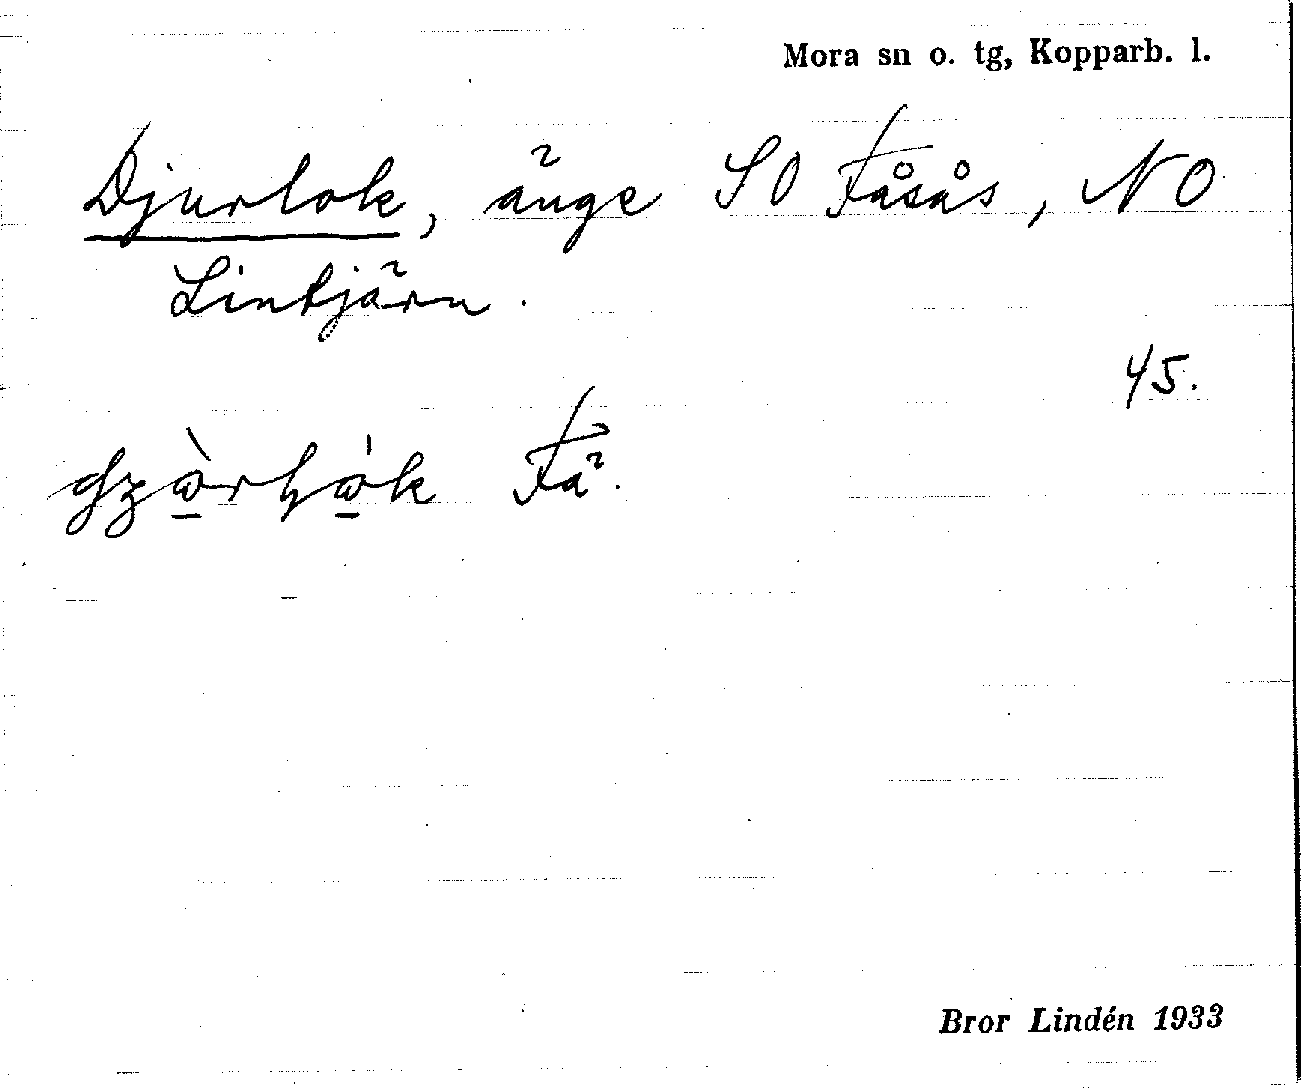 Mora sn o. tg, Kopparb. l.
Djurlok, änge SO Fåsås, NO
Lintjärn.
45.
Få.
Bror Lindén 1933